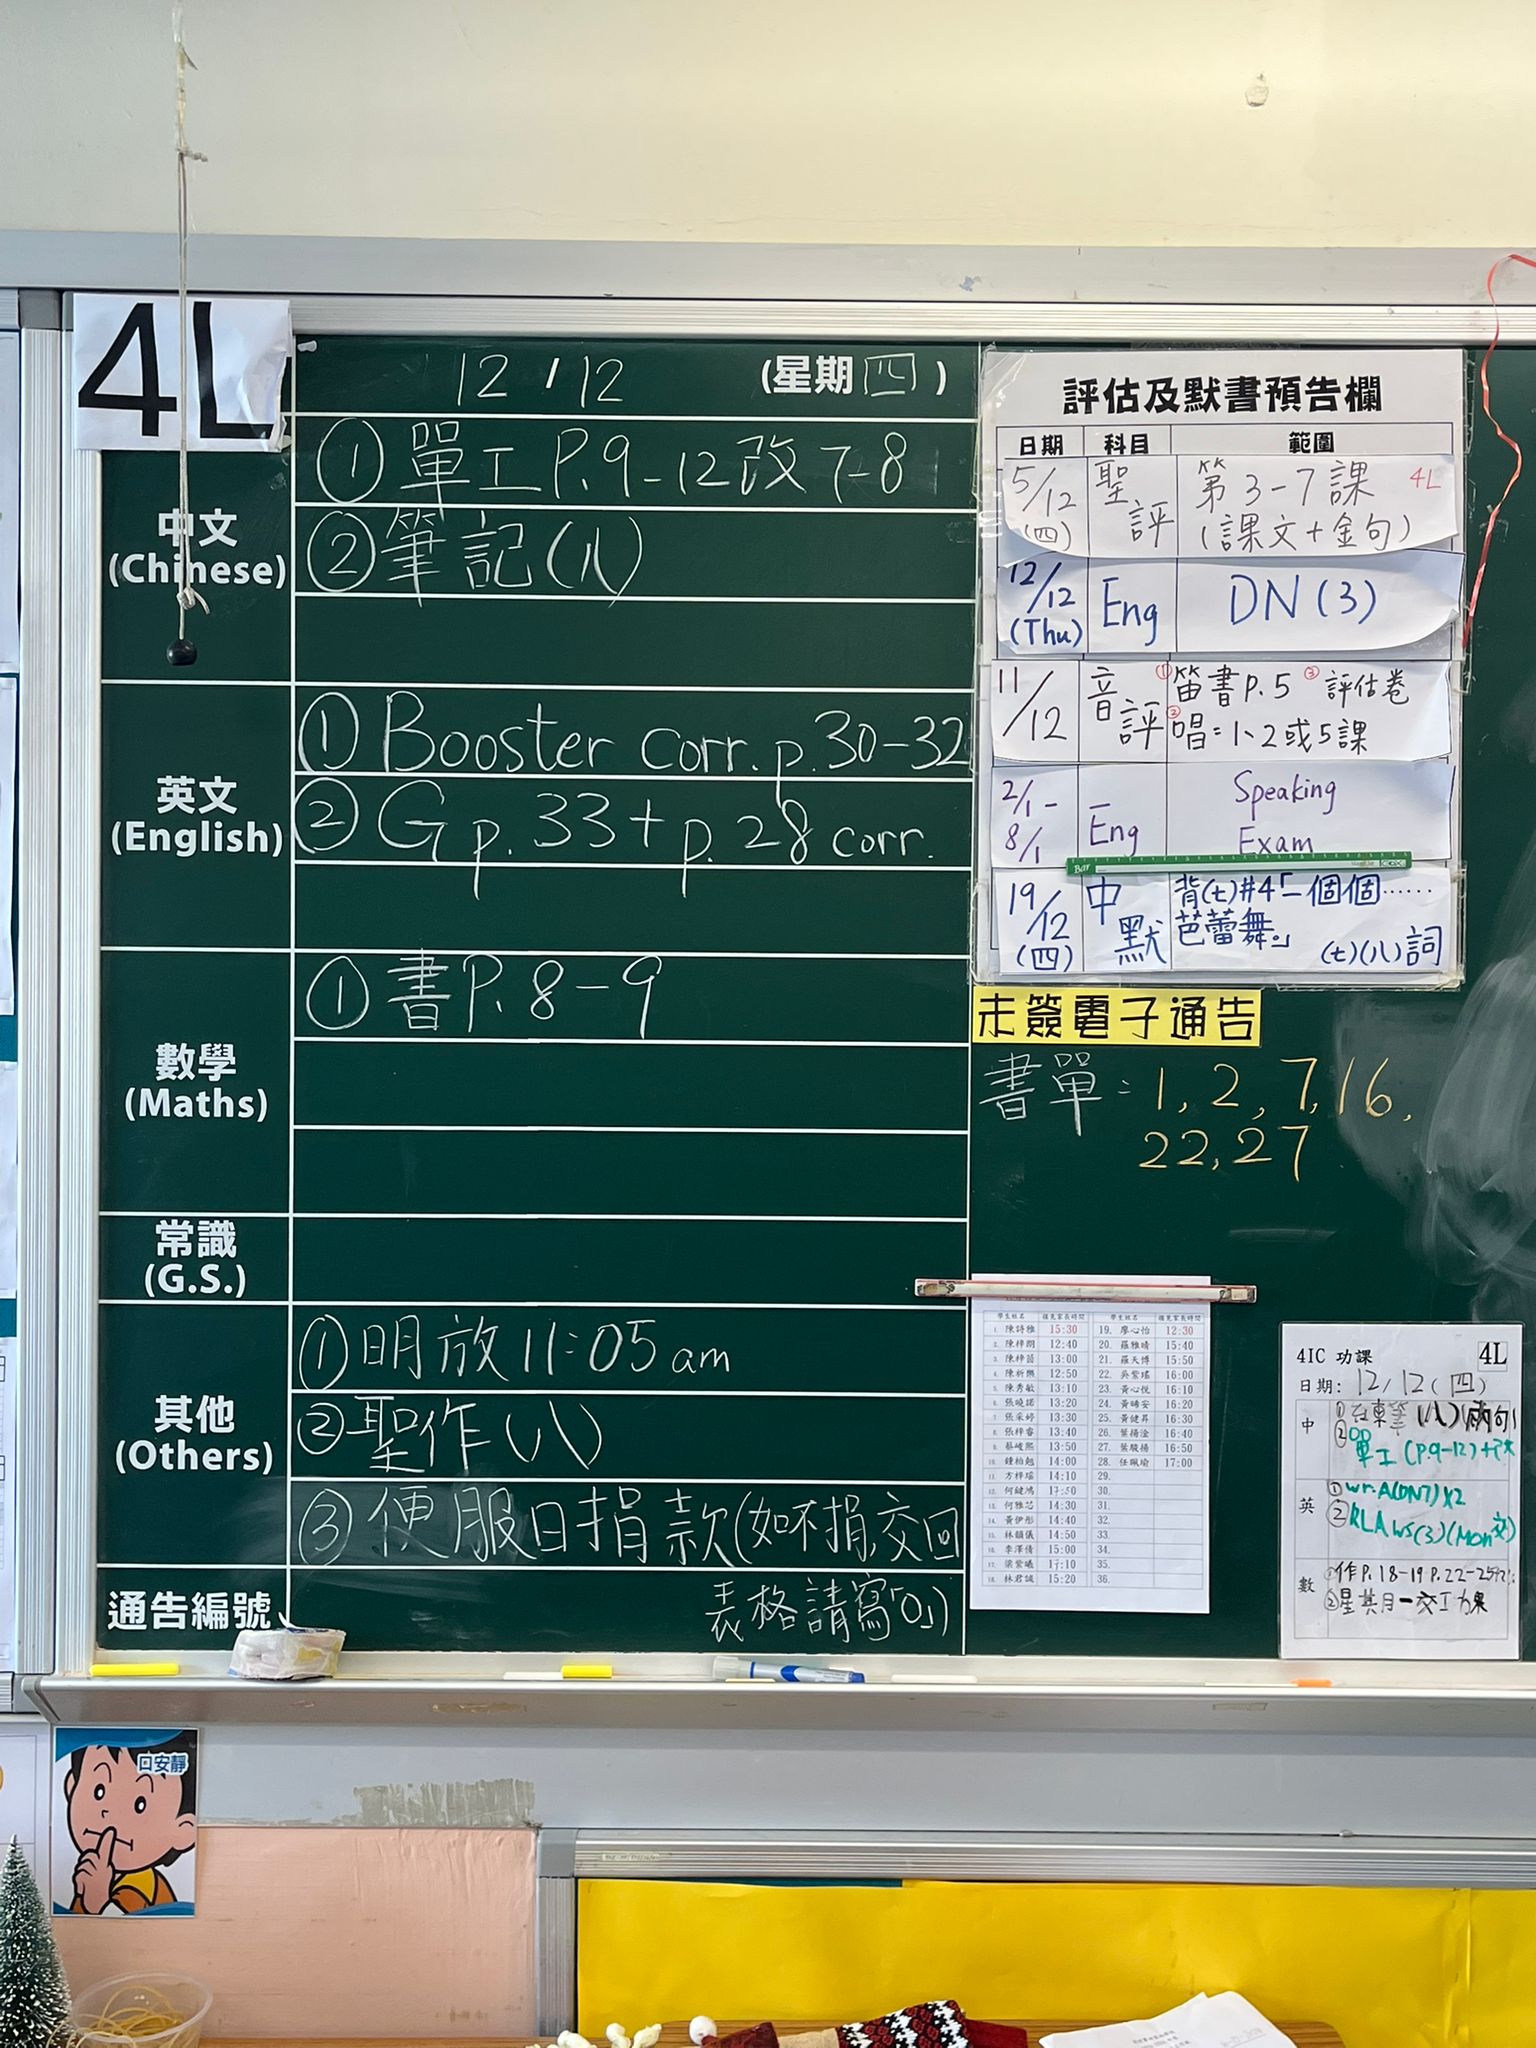 4L
12 / 12 (星期四)
中文
(Chinese)
① 單工 P.9-12改 7-8
② 筆記(八)
英文
(English)
① Booster corr. p.30-32
② G p. 33 + p. 28 corr.
數學
(Maths)
① 書P. 8-9
常識
(G.S.)
其他
(Others)
① 明放 11:05 am
② 聖作(八)
③ 便服日捐款(如不捐,交回
通告編號
表格請寫「0」)
評估及默書預告欄
日期 科目 範圍
5/12 (四) 聖評 第 3-7 課 4L
(課文+金句)
12/12 (Thu) Eng DN (3)
11/12 音評 ①笛書p.5 ③評估卷
②唱:1、2或5課
2/1 - 8/1 Eng Speaking
Exam
19/12 (四) 中默 背(七)#4「一個個……
芭蕾舞。」
(七)(八)詞
未簽電子通告
書單: 1, 2, 7, 16,
22, 27
學生姓名 接見家長時間 學生姓名 接見家長時間
1. 陳詩雅 15:30 19. 廖心怡 12:30
2. 12:40 20. 羅雅晴 15:40
3. 13:00 21. 羅天博 15:50
4. 12:50 22. 16:00
5. 陳秀敏 13:10 23. 黃心悅 16:10
6. 13:20 24. 16:20
7. 13:30 25. 黃健昇 16:30
8. 13:40 26. 16:40
9. 13:50 27. 葉駿揚 16:50
10. 14:00 28. 任珮瑜 17:00
11. 14:10 29.
12. 30.
13. 14:30 31.
14. 黃伊彤 14:40 32.
15. 14:50 33.
16. 15:00 34.
17. 35.
18. 15:20 36.
4IC 功課 4L
日期: 12/12(四)
中 ① (八)(兩句)
② 單工 (P.9-12)+
英 ① wr. A(DN7) x2
② RLA ws(3)(Mon交)
數 ① 作P.18-19 P.22-25
② 星期一交工
安靜